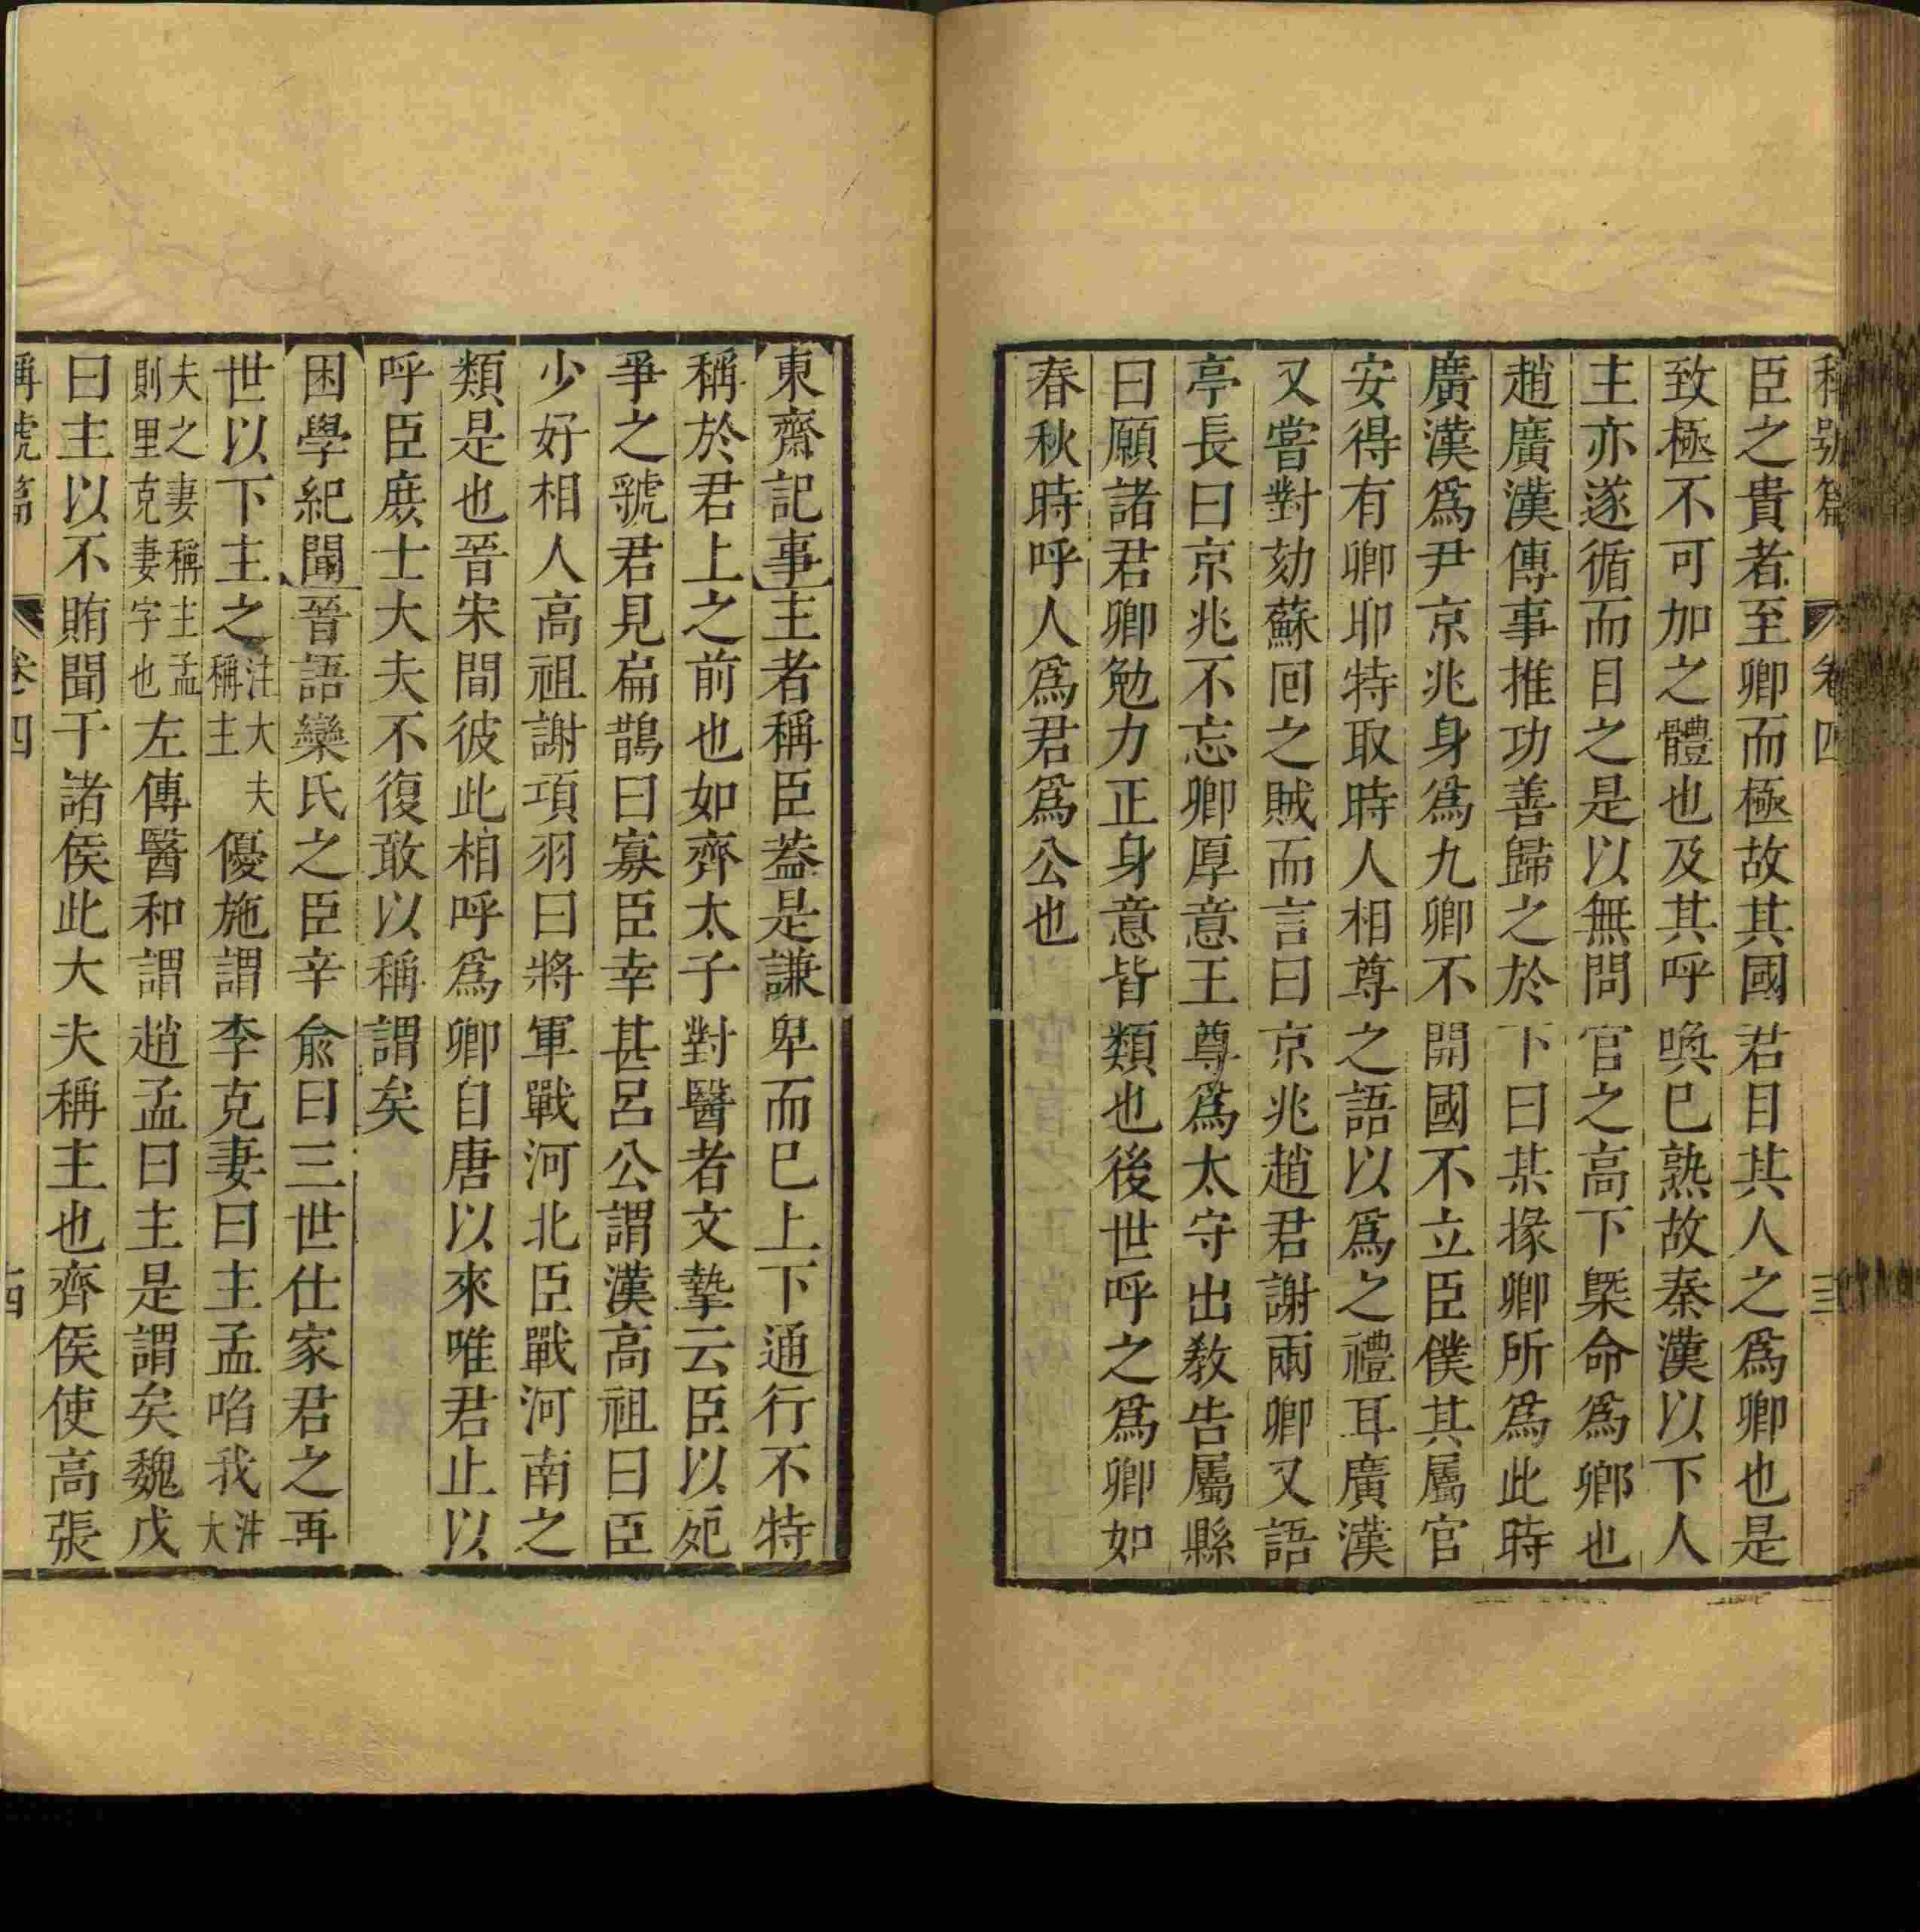 稱號篇 卷四 三
臣之貴者至卿而極故其國君目其人之爲卿也是
致極不可加之體也及其呼喚已熟故秦漢以下人
主亦遂循而目之是以無問官之高下槩命爲卿也
趙廣漢傳事推功善歸之於下曰某掾卿所爲此時
廣漢爲尹京兆身爲九卿不開國不立臣僕其屬官
安得有卿耶特取時人相尊之語以爲之禮耳廣漢
又嘗對劾蘇回之賊而言曰京兆趙君謝兩卿又語
亭長曰京兆不忘卿厚意王尊爲太守出敎告屬縣
曰願諸君卿勉力正身意皆類也後世呼之爲卿如
春秋時呼人爲君爲公也
東齋記事主者稱臣葢是謙卑而已上下通行不特
稱於君上之前也如齊太子對醫者文摯云臣以死
爭之虢君見扁鵲曰寡臣幸甚呂公謂漢高祖曰臣
少好相人高祖謝項羽曰將軍戰河北臣戰河南之
類是也晉宋間彼此相呼爲卿自唐以來唯君止以
呼臣庶士大夫不復敢以稱謂矣
困學紀聞晉語欒氏之臣辛俞曰三世仕家君之再
世以下主之注大夫稱主優施謂李克妻曰主孟啗我注大
夫之妻稱主孟則里克妻字也左傳醫和謂趙孟曰主是謂矣魏戊
曰主以不賄聞于諸侯此大夫稱主也齊侯使高張
稱號篇 卷四 四